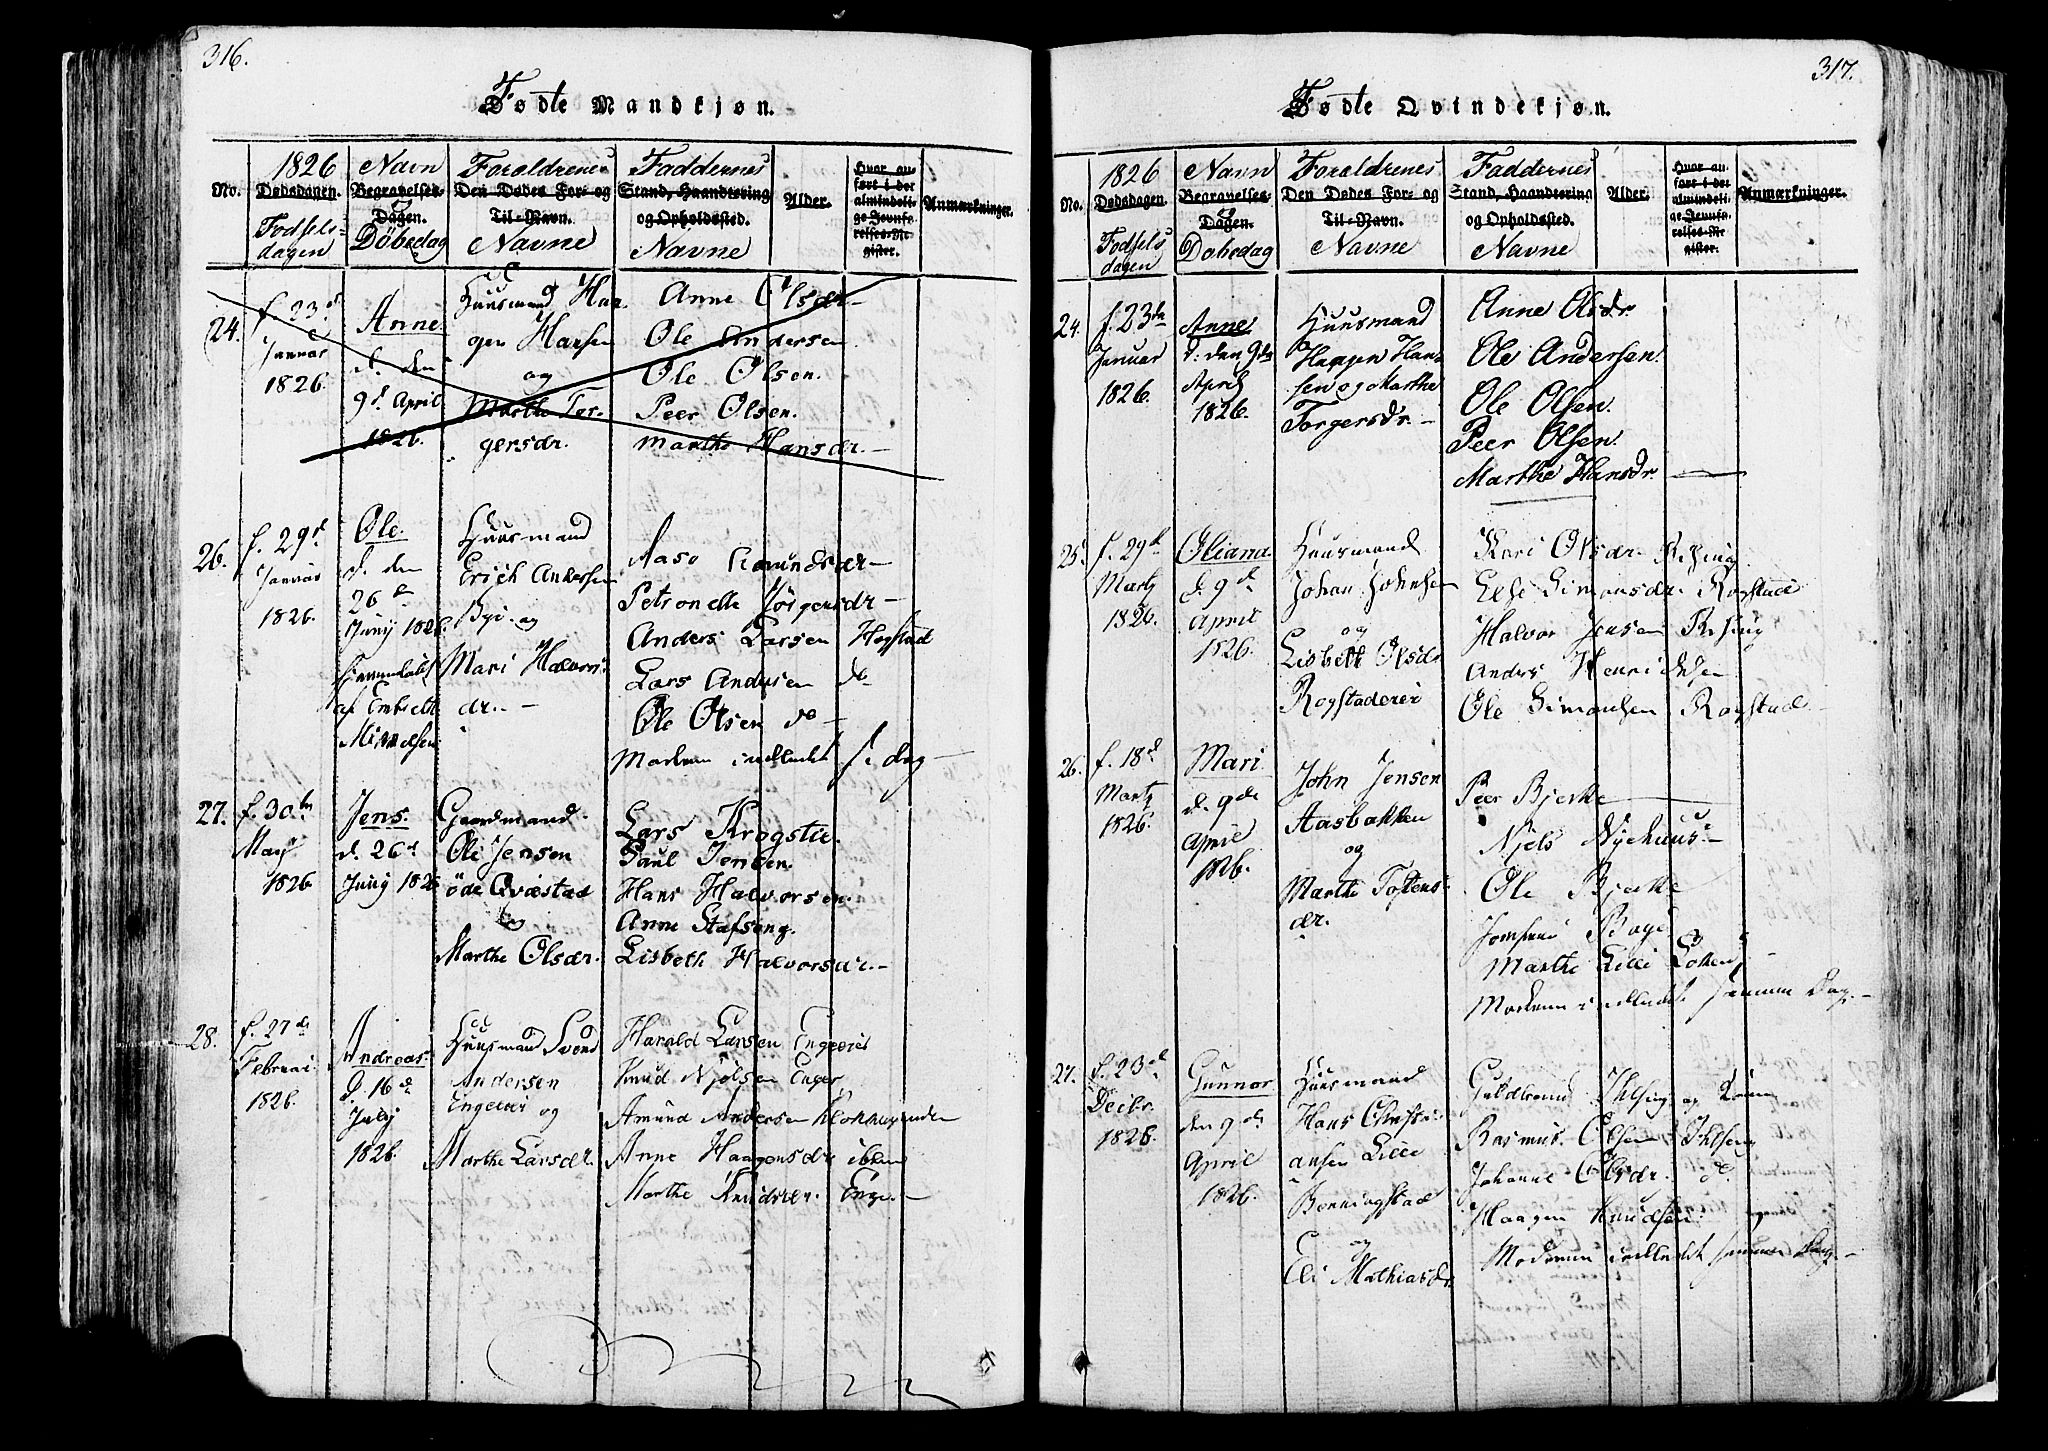 316.
Fødte Mandkjøn.
No.
1826
Dødsdagen.
Fodsels-
dagen
Navn
Begravelses-
Dagen.
Döbedag
Foraldrenes
Den Dødes For- og
Til-Navn.
Navne
Faddernes
Stand, Haandtering
og Opholdssted.
Navne
Alder.
Hvor an-
ført i det
almindeli-
ge Jevnfø-
relses-Re-
gister.
Anmærkninger.
24.
f. 23d
Januar
1826.
Anne
d. den
9d April
1826.
Huusmand Haa
gen Hansen
og
Marthe Tor-
gersdr.
Anne Olsdr
Ole Andersen
Ole Olsen.
Peer Olsen.
Marthe Hansdr.
26.
f. 29d
Januar
1826.
Ole.
d. den
26d
Juny 1826
hjemmedøbt
af Embreth
Huusmand
Erich Andersen
Bye og
Mari Halvors
dr.
Aase Amundsdr
Petronelle Jörgensdr
Anders Larsen Hogstad
Lars Andersen do
Ole Olsen do
Moderen indledet s. dag
27.
f. 30te
May
1826
Jens.
d. 26d
Juny 1826
Gaardmand
Ole Jensen
öde Qvæstad
og
Marthe Olsdr.
Lars Krogstie.
Paul Jensen.
Hans Halvorsen.
Anne Stafseng.
Lisbeth Halvorsdr.
28.
f. 27de
Februar
1826.
Andreas
d. 16d
July
1826.
Huusmand Svend
Andersen
Engeeiet og
Marthe Larsdr.
Harald Larsen Engeeiet
Knud Njölsen Enger
Amund Andersen Klokkergården
Anne Haagensdr ibdm
Marthe Knudsdr. Enge
317.
Fødte Qvindekjøn.
No.
1826
Dødsdagen.
Fodsels
dagen
Navn
Begravelses-
Dagen.
Dobedag
Foraldrenes
Den Dødes For- og
Til-Navn.
Navne
Faddernes
Stand, Haandtering
og Opholdssted.
Navne
Alder.
Hvor an-
ført i det
almindeli-
ge Jevnfø-
relses-Re-
gister.
Anmærkninger.
24.
f. 23de
Januar
1826.
Anne
d: den 9de
April
1826.
Huusmand
Haagen Han-
sen og Marthe
Torgersdr.
Anne Olsdr
Ole Andersen.
Ole Olsen.
Peer Olsen.
Marthe Hansdr.
25.
f. 29d
Martz
1826.
Oliana
d. 9d
April
1826.
Huusmand
Johan Johnsen
og
Lisbeth Olsdr
Rogstadeiet
Kari Olsdr. Rising
Else Simonsdr. Rogstad
Halvor Jensen Rising
Anders Henrichsen
Ole Simonsen Rogstad
26.
f. 18d
Martz
1826.
Mari
d. 9de
April
1826.
John Jensen
Aasbakken
og
Marthe Tostens-
dr.
Peer Bjerke
Njels Nyehuus
Ole Bjerke
Jomfrue Bage
Marthe Lille Løken
Moderen indledet samme Dag.
27.
f. 23d
Decbr.
1826.
Gunnor
den 9de
April
1826.
Huusmand
Hans Christi-
ansen Lille
Benningstad
og
Eli Mathiasdr
Guldbrand Ihlseng og Kone
Rasmus Olsen Ihlseng
Johanne Olsdr. d.
Haagen Knudsen
Moderen indledet samme Dag.